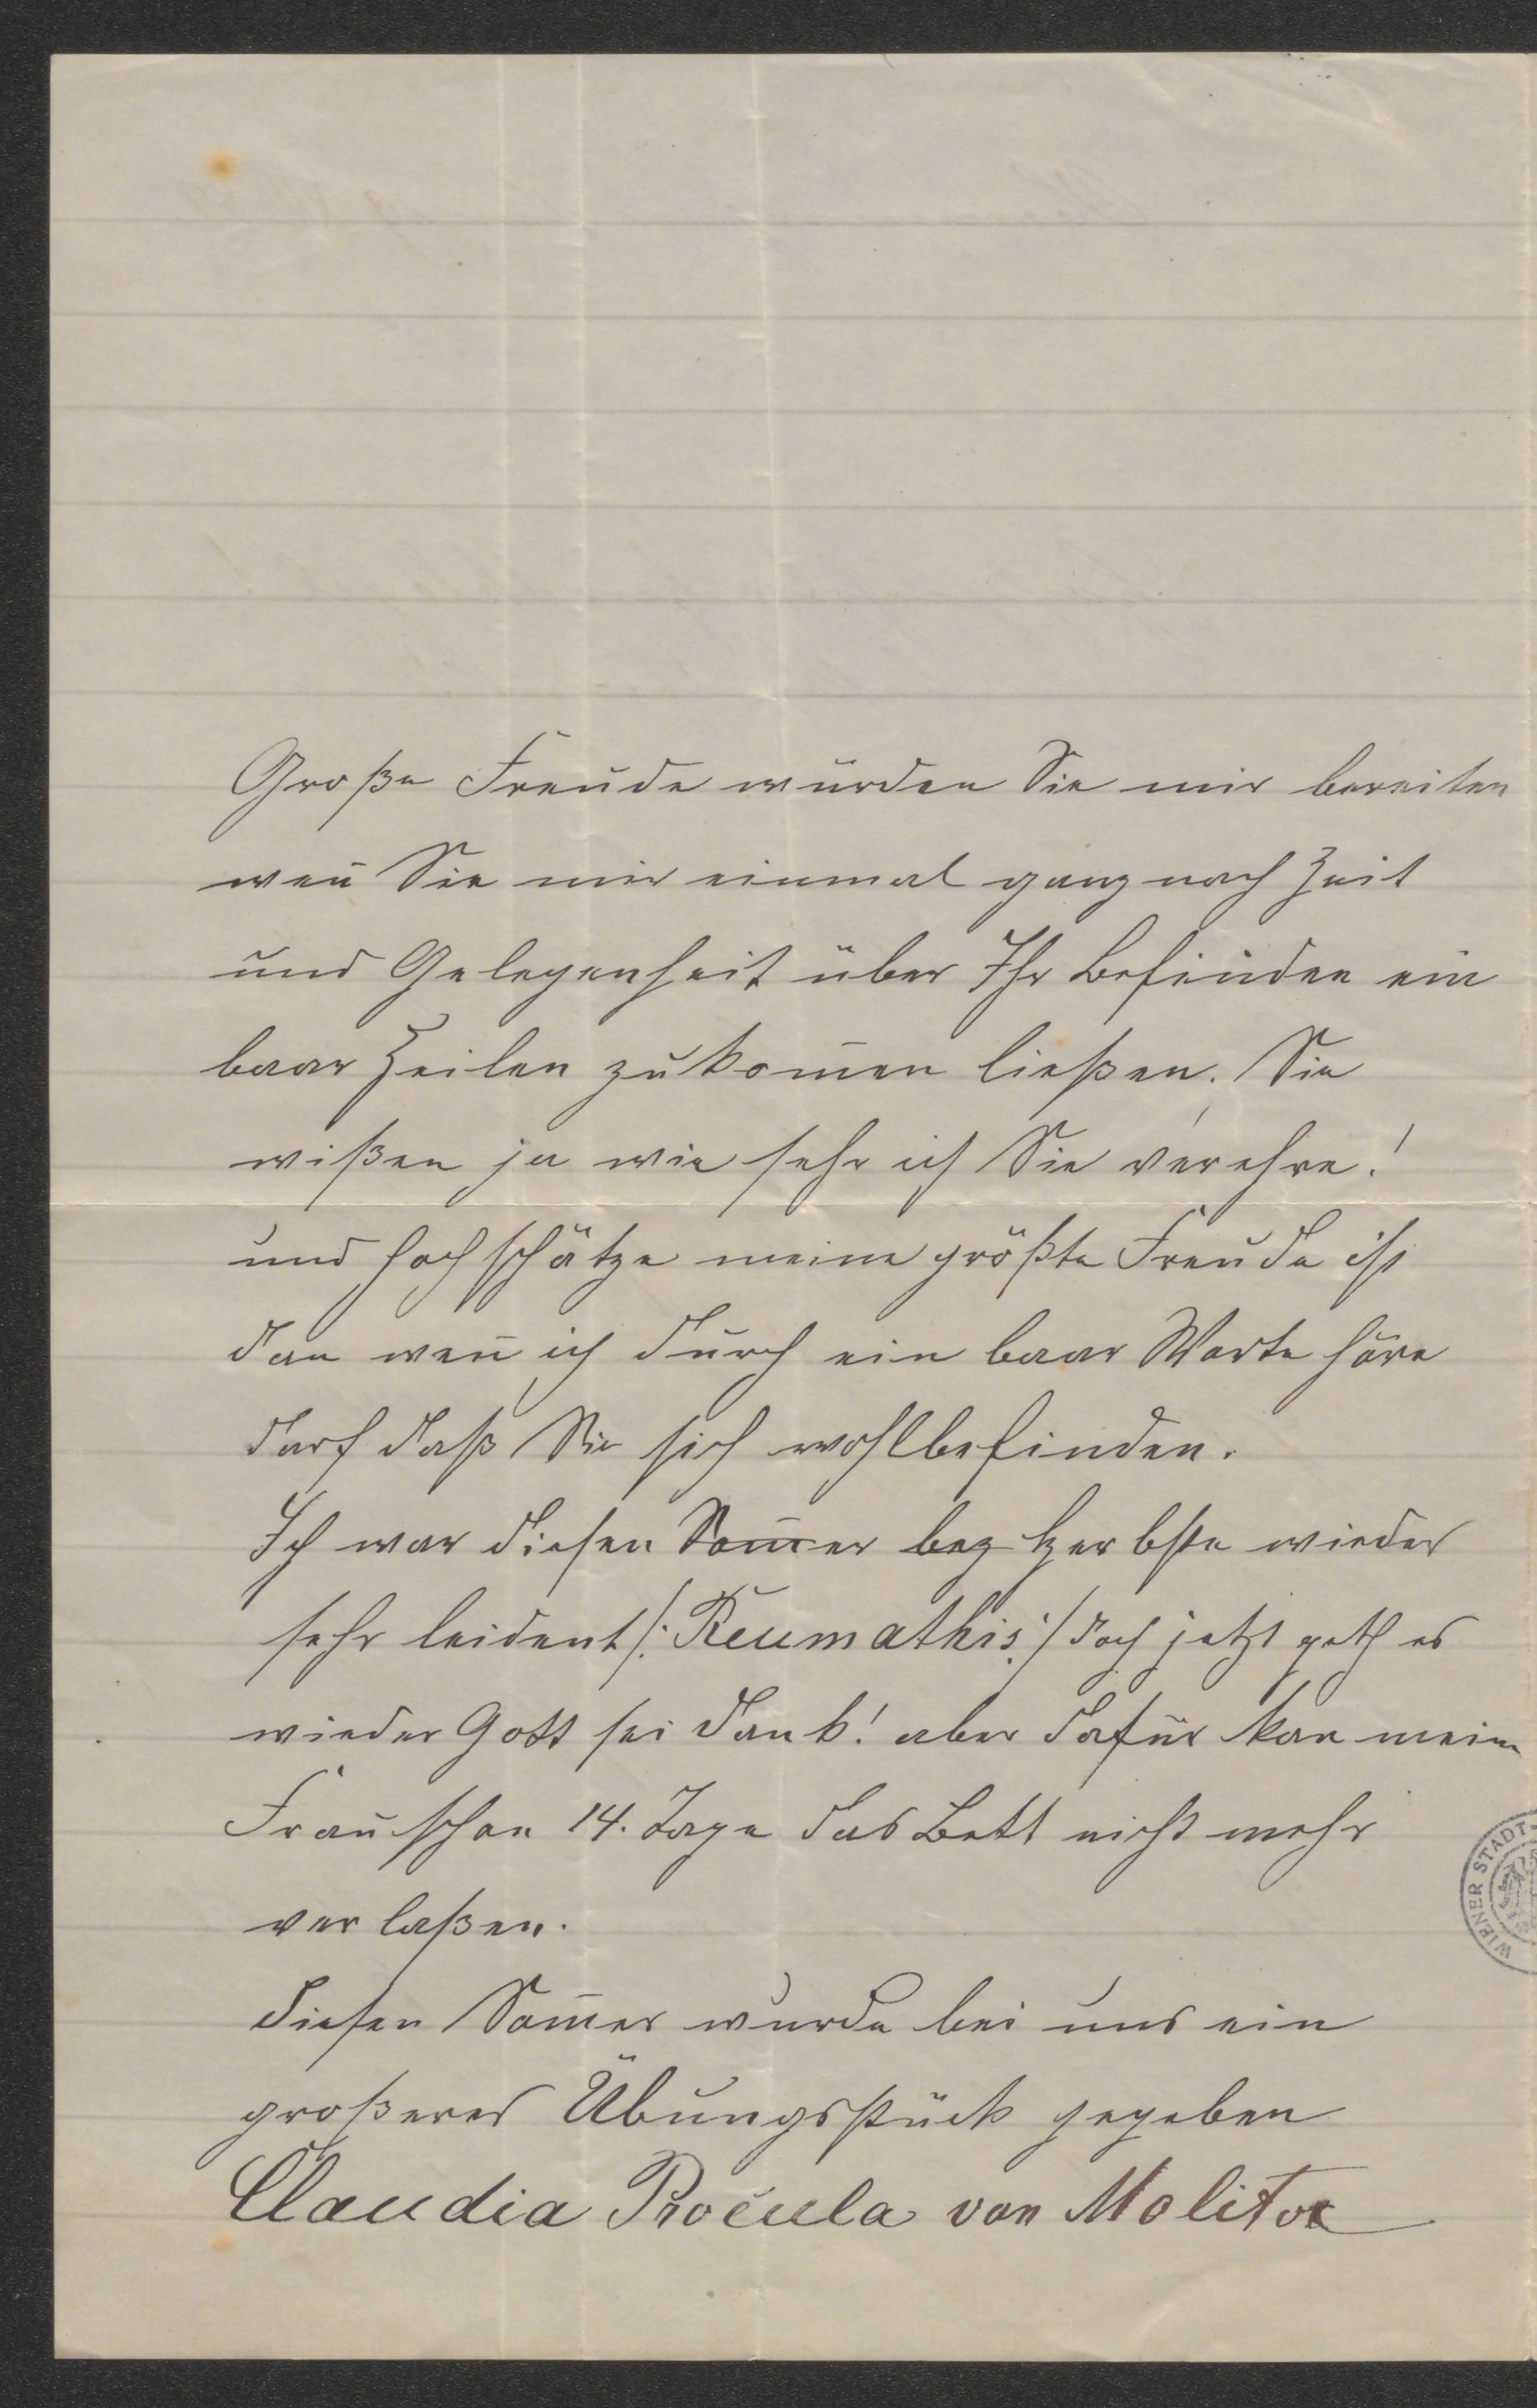 Große Freude würden Sie mir bereiten
weñ Sie mir einmal ganz nach Zeit
und Gelegenheit über Ihr Befinden ein
baar Zeilen zukom̄en ließen. Sie
wißen ja wie sehr ich Sie verehre!
und hochschätze meine größte Freude ist
dan weñ ich durch ein baar Worte höre
darf daß Sie sich wohlbefinden.
Ich war diesen Som̄er bez Herbste wieder
sehr leident /: Reumathis :/ doch jetzt geth es
wieder Gott sei dank! aber dafür kan meine
Frau schon 14. Tage das Bett nicht mehr
verlaßen.
diesen Som̄er wurde bei uns ein
großeres Übungsstück gegeben
Claudia Procula von Molitor
WIENER STADT-